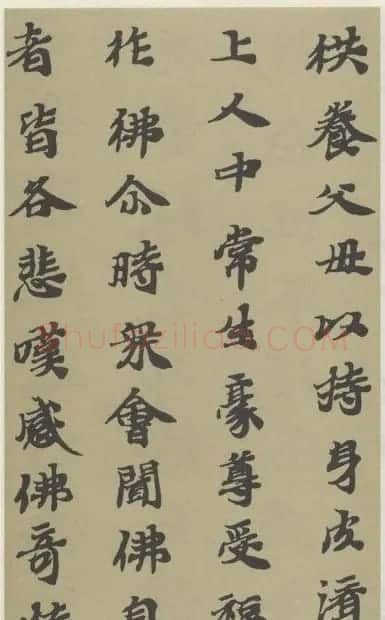 供養父母以持身皮濟
上人中常生豪尊受福
作佛尒時眾會聞佛
者皆各悲嘆感佛奇
shufaziliao.COM